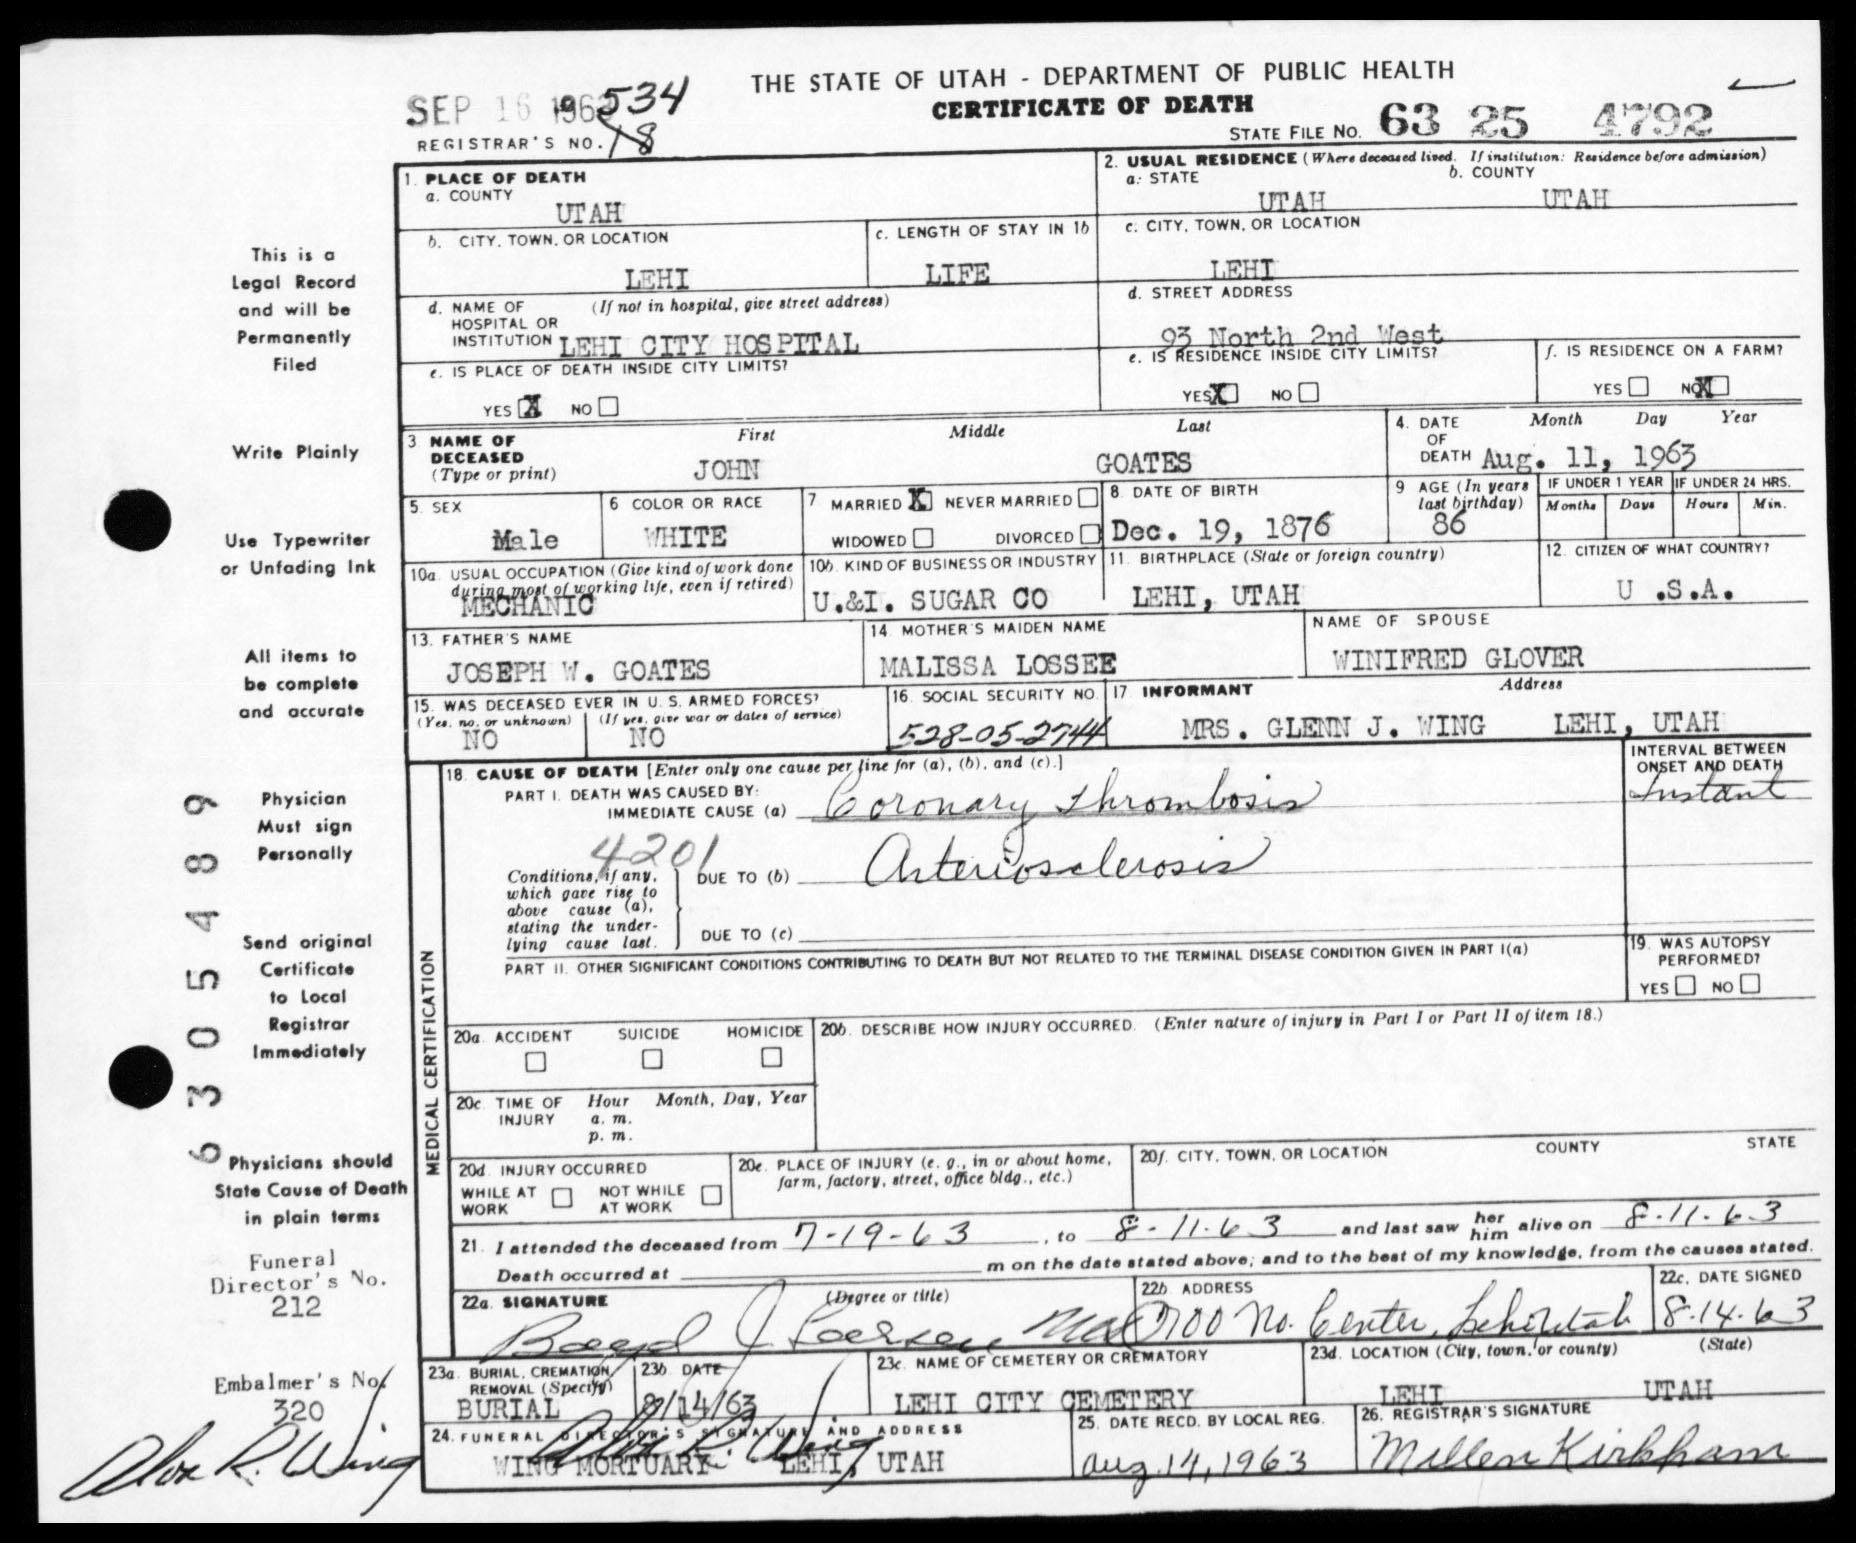 THE STATE OF UTAH - DEPARTMENT OF PUBLIC HEALTH
CERTIFICATE OF DEATH
SEP 16 1963 534
REGISTRAR'S NO. 18
STATE FILE NO. 63 25 4792
1. PLACE OF DEATH
a. COUNTY
UTAH
2. USUAL RESIDENCE (Where deceased lived. If institution: Residence before admission)
a. STATE b. COUNTY
UTAH UTAH
b. CITY, TOWN, OR LOCATION
LEHI
c. LENGTH OF STAY IN 1b
LIFE
c. CITY, TOWN, OR LOCATION
LEHI
d. NAME OF (If not in hospital, give street address)
HOSPITAL OR
INSTITUTION LEHI CITY HOSPITAL
d. STREET ADDRESS
93 North 2nd West
e. IS PLACE OF DEATH INSIDE CITY LIMITS?
YES X NO
e. IS RESIDENCE INSIDE CITY LIMITS?
YES X NO
f. IS RESIDENCE ON A FARM?
YES NO X
3 NAME OF DECEASED
(Type or print)
First Middle Last
JOHN GOATES
4. DATE OF DEATH
Month Day Year
Aug. 11, 1963
5. SEX
Male
6 COLOR OR RACE
WHITE
7 MARRIED X NEVER MARRIED
WIDOWED DIVORCED
8. DATE OF BIRTH
Dec. 19, 1876
9 AGE (In years last birthday)
86
IF UNDER 1 YEAR IF UNDER 24 HRS.
Months Days Hours Min.
10a. USUAL OCCUPATION (Give kind of work done
during most of working life, even if retired)
MECHANIC
10b. KIND OF BUSINESS OR INDUSTRY
U.&I. SUGAR CO
11. BIRTHPLACE (State or foreign country)
LEHI, UTAH
12. CITIZEN OF WHAT COUNTRY?
U .S.A.
13. FATHER'S NAME
JOSEPH W. GOATES
14. MOTHER'S MAIDEN NAME
MALISSA LOSSEE
NAME OF SPOUSE
WINIFRED GLOVER
15. WAS DECEASED EVER IN U. S. ARMED FORCES?
(Yes, no, or unknown) (If yes, give war or dates of service)
NO NO
16. SOCIAL SECURITY NO.
528-05-2744
17. INFORMANT Address
MRS. GLENN J. WING LEHI, UTAH
MEDICAL CERTIFICATION
18. CAUSE OF DEATH [Enter only one cause per line for (a), (b), and (c).]
INTERVAL BETWEEN
ONSET AND DEATH
PART I. DEATH WAS CAUSED BY:
IMMEDIATE CAUSE (a) Coronary Thrombosis Instant
4201
Conditions, if any,
which gave rise to
above cause (a),
stating the under-
lying cause last.
DUE TO (b) Arteriosclerosis
DUE TO (c)
PART II. OTHER SIGNIFICANT CONDITIONS CONTRIBUTING TO DEATH BUT NOT RELATED TO THE TERMINAL DISEASE CONDITION GIVEN IN PART I(a)
19. WAS AUTOPSY
PERFORMED?
YES NO
20a. ACCIDENT SUICIDE HOMICIDE
20b. DESCRIBE HOW INJURY OCCURRED. (Enter nature of injury in Part I or Part II of item 18.)
20c. TIME OF INJURY
Hour Month, Day, Year
a. m.
p. m.
20d. INJURY OCCURRED
WHILE AT WORK NOT WHILE AT WORK
20e. PLACE OF INJURY (e. g., in or about home,
farm, factory, street, office bldg., etc.)
20f. CITY, TOWN, OR LOCATION COUNTY STATE
21. I attended the deceased from 7-19-63, to 8-11-63 and last saw her him alive on 8-11-63
Death occurred at m on the date stated above; and to the best of my knowledge, from the causes stated.
22a. SIGNATURE (Degree or title)
Boyd J. Larsen MD
22b. ADDRESS
700 No. Center, Lehi Utah
22c. DATE SIGNED
8-14-63
23a. BURIAL, CREMATION,
REMOVAL (Specify)
BURIAL
23b. DATE
8/14/63
23c. NAME OF CEMETERY OR CREMATORY
LEHI CITY CEMETERY
23d. LOCATION (City, town, or county) (State)
LEHI UTAH
24. FUNERAL DIRECTOR'S SIGNATURE AND ADDRESS
Alva R. Wing
WING MORTUARY LEHI, UTAH
25. DATE RECD. BY LOCAL REG.
Aug. 14, 1963
26. REGISTRAR'S SIGNATURE
Millen Kirkham
This is a
Legal Record
and will be
Permanently
Filed
Write Plainly
Use Typewriter
or Unfading Ink
All items to
be complete
and accurate
Physician
Must sign
Personally
Send original
Certificate
to Local
Registrar
Immediately
Physicians should
State Cause of Death
in plain terms
Funeral
Director's No.
212
Embalmer's No.
320
Alva R. Wing
6 3 0 5 4 8 9